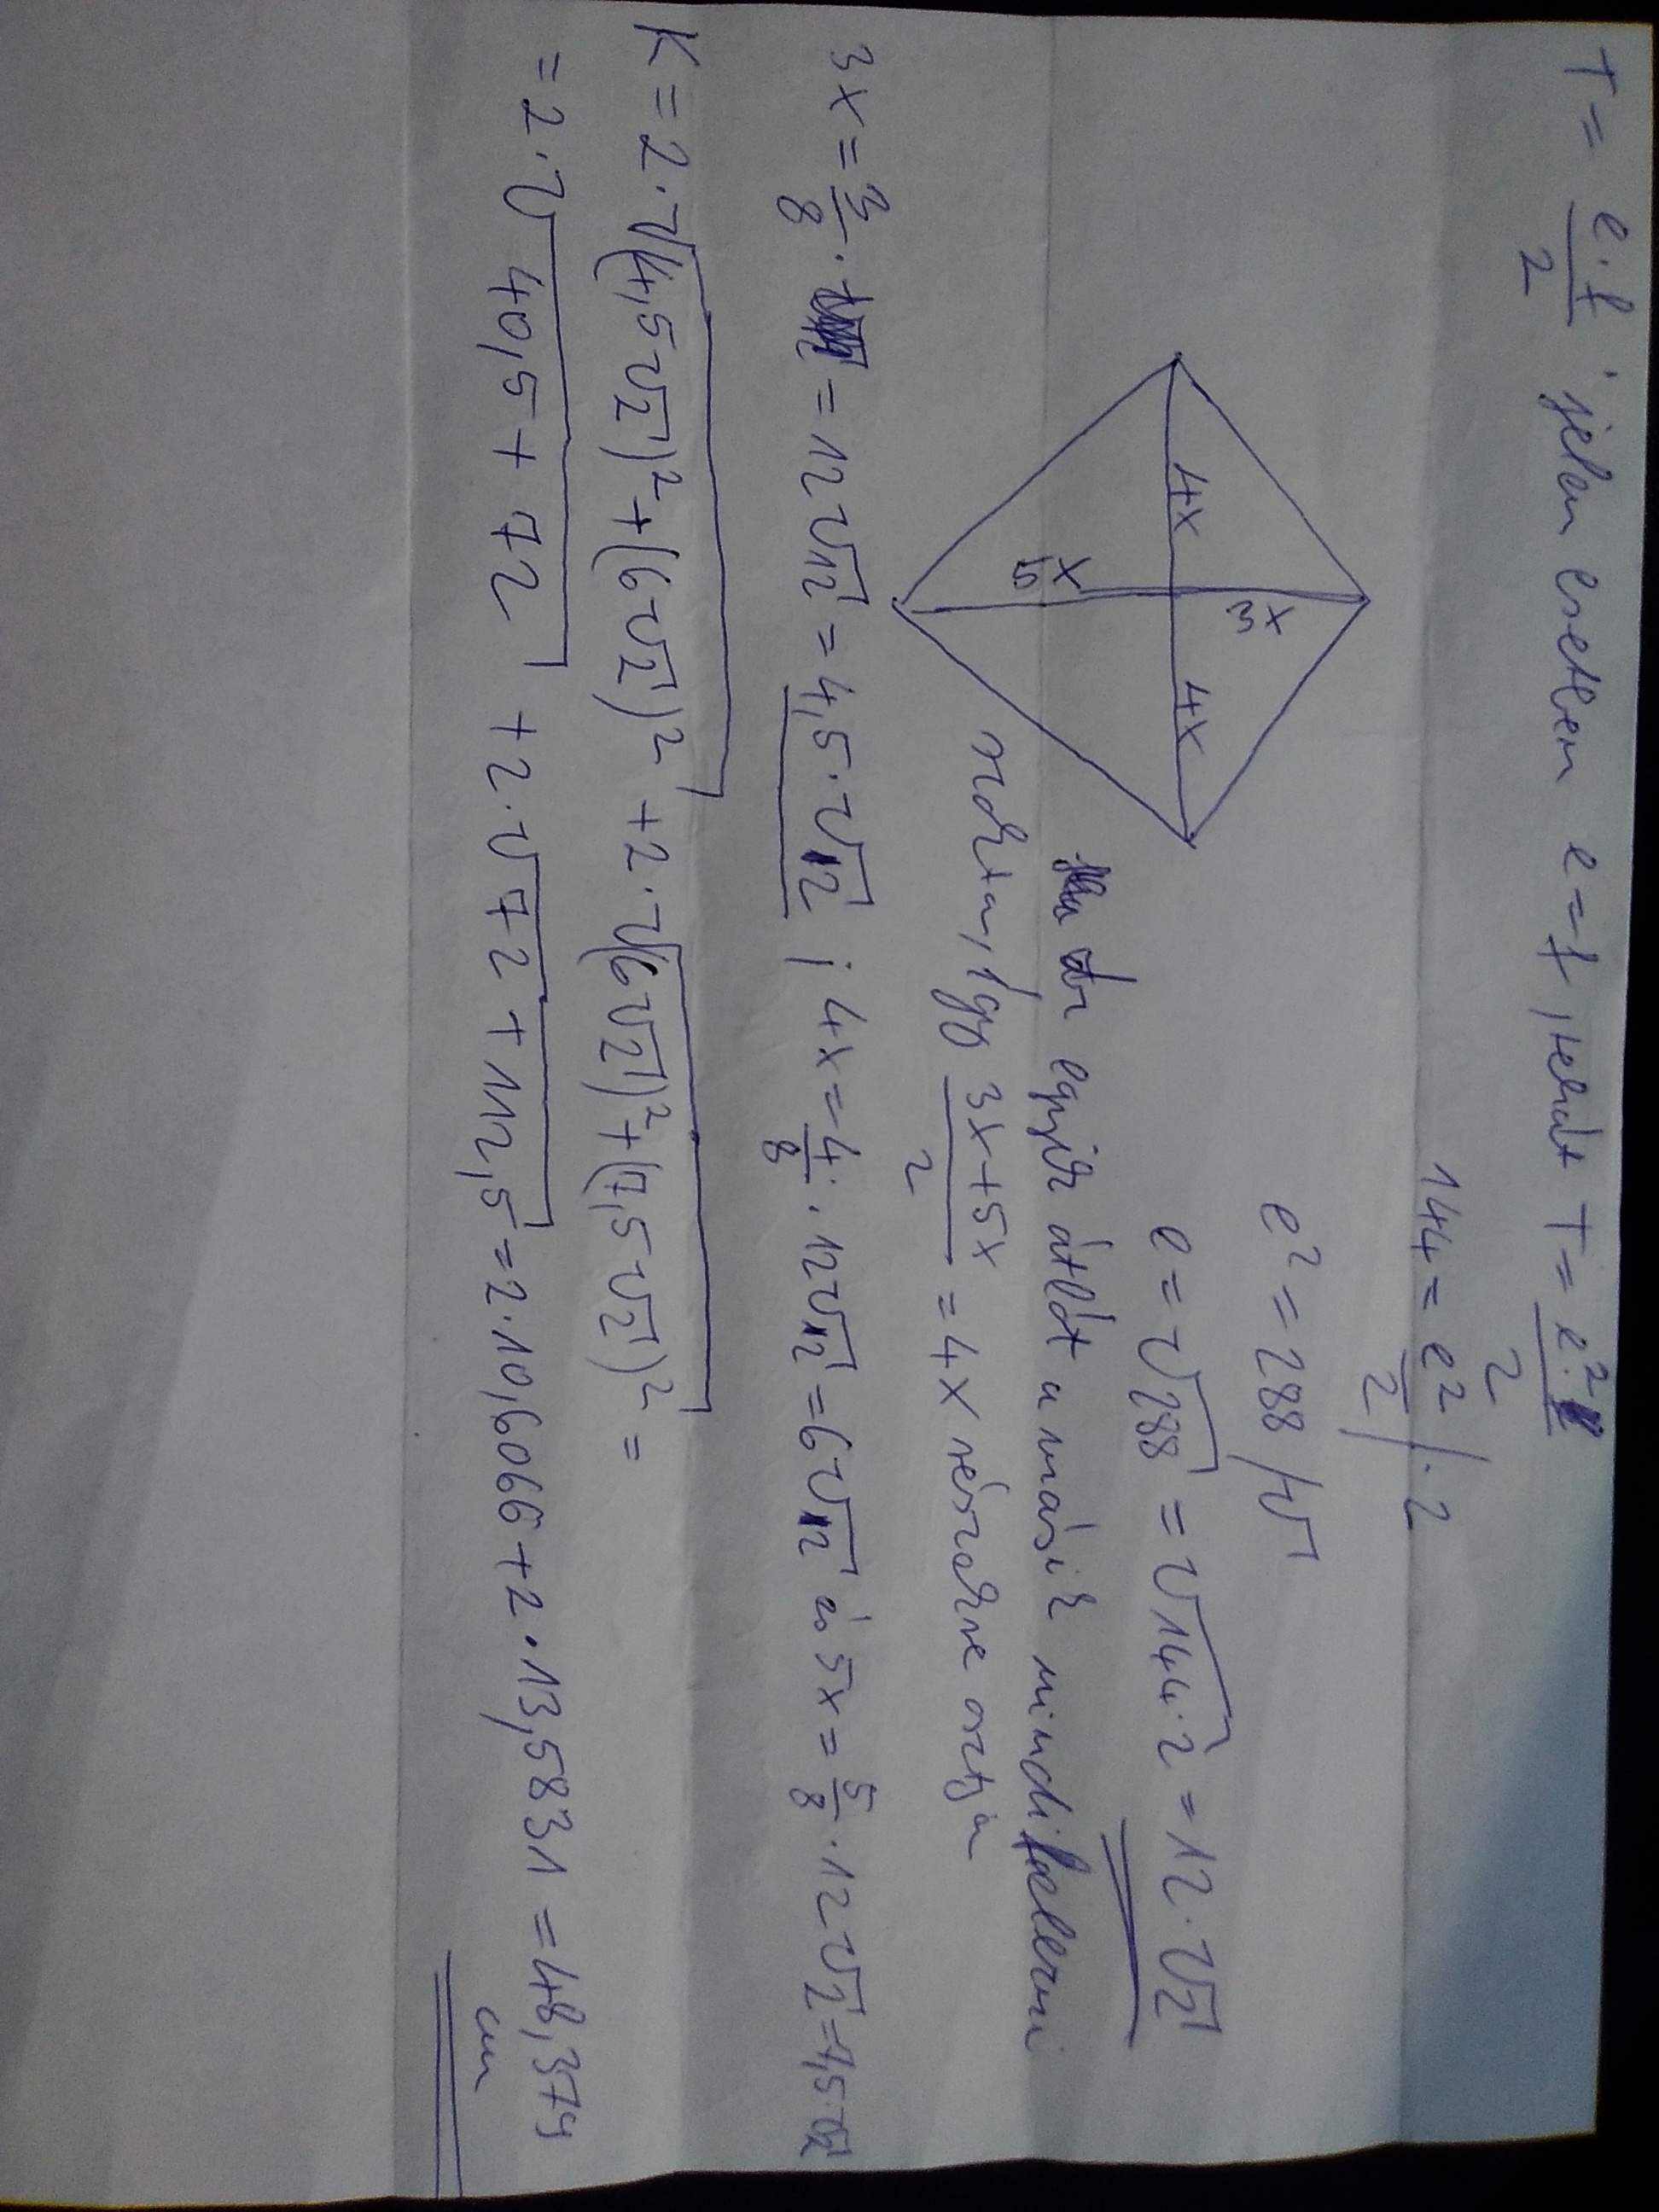 T = e·f/2 ; jelen esetben e=f, tehát T = e²/2
144 = e²/2 | ·2
e² = 288 /√
e = √288 = √144·2 = 12·√2
4x 4x
3x
5x
az egyik átlót a másik mindi felezni
szoktam, így (3x+5x)/2 = 4x részekre osztja
3x = 3/8 · = 12√2 = 4,5·√2 ; 4x = 4/8 · 12√2 = 6√2 és 5x = 5/8 · 12√2 = 7,5·√2
K = 2·√((4,5√2)² + (6√2)²) + 2·√((6√2)² + (7,5√2)²) =
= 2·√(40,5 + 72) + 2·√(72 + 112,5) = 2·10,6066 + 2·13,5831 = 48,379
cm